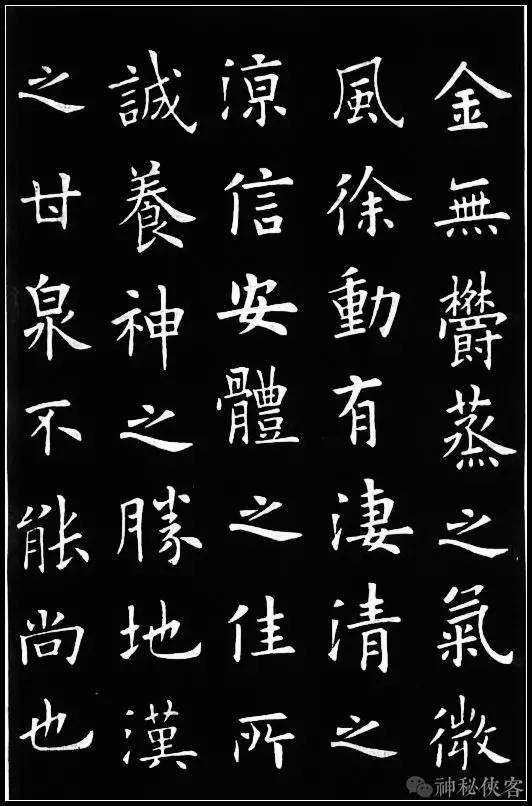 金無鬱蒸之氣微
風徐動有淒清之
涼信安體之佳所
誠養神之勝地漢
之甘泉不能尚也
神秘侠客